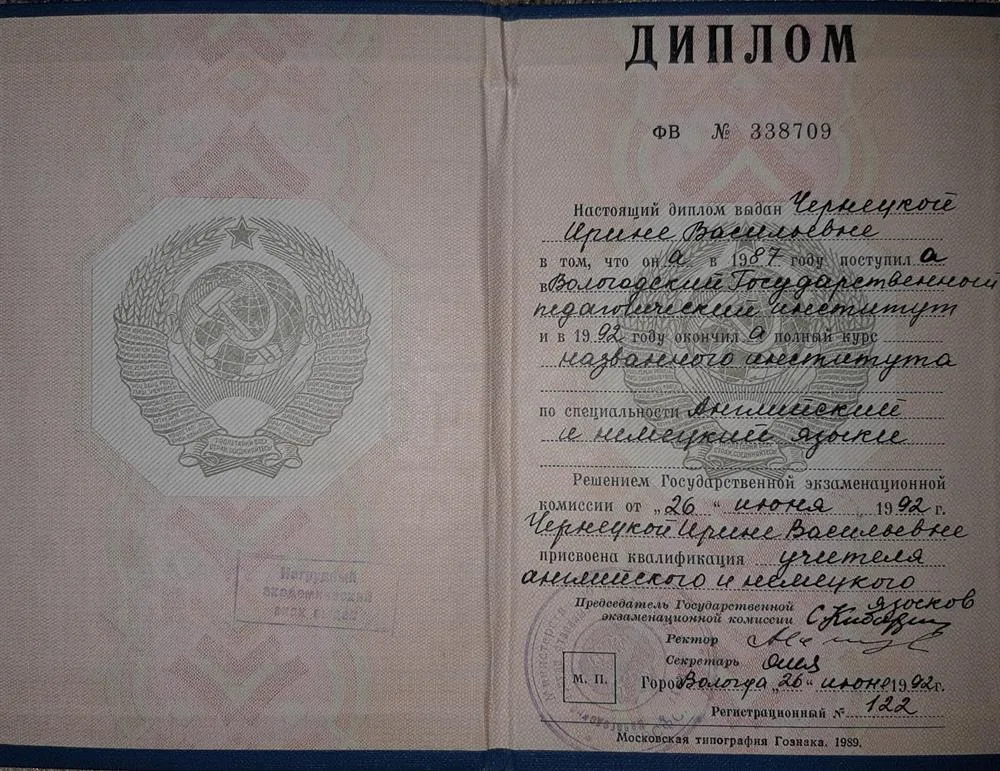 ПРОЛЕТАРИИ ВСЕХ
СТРАН, СОЕДИНЯЙТЕСЬ!
Нагрудный
академический
знак выдан
ДИПЛОМ
ФВ № 338709
Настоящий диплом выдан Чернецкой
Ирине Васильевне
в том, что он а в 1987 году поступил а
в Вологодский Государственный
педагогический институт
и в 1992 году окончил а полный курс
названного института
по специальности Английский
и немецкий языки
Решением Государственной экзаменационной
комиссии от „26" июня 1992 г.
Чернецкой Ирине Васильевне
присвоена квалификация учителя
английского и немецкого
языков
Председатель Государственной
экзаменационной комиссии
Ректор
Секретарь
М. П.
Город Вологда „26" июня 1992 г.
Регистрационный № 122
Московская типография Гознака. 1989.